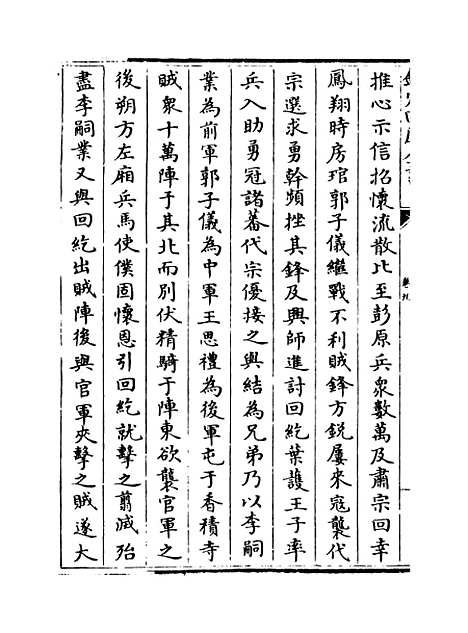 推心示信招懷流散比至彭原兵衆數萬及肅宗回幸
鳳翔時房琯郭子儀繼戰不利賊鋒方銳屢來冦襲代
宗選求勇幹頻挫其鋒及興師進討回紇葉護王子率
兵入助勇冠諸蕃代宗優接之與結為兄弟乃以李嗣
業為前軍郭子儀為中軍王思禮為後軍屯于香積寺
賊衆十萬陣于其北而別伏精騎于陣東欲襲官軍之
後朔方左廂兵馬使僕固懷恩引回紇就擊之翦滅殆
盡李嗣業又與回紇出賊陣後與官軍夾擊之賊遂大